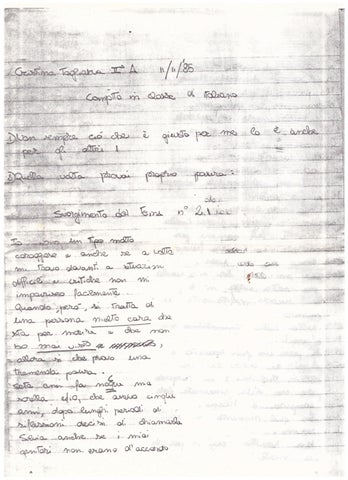 Cristina Tagliavia IIª A 11/11/85
Compito in classe di Italiano
1) Non sempre ciò che è giusto per me lo è anche
per gli altri !
2) Quella volta provai proprio paura:
Svolgimento del tema n° 2
Io sono un tipo molto
coraggioso e anche se a volte
mi trovo davanti a situazioni
difficili e critiche non mi
impaurisco facilmente.
Quando, però, si tratta di
una persona molto cara che
sta per morire e che non
ho mai visto
allora sì che provo una
tremenda paura.
Sette anni fa nacque mia
sorella ed io, che avevo cinque
anni, dopo lunghi periodi di
riflessioni decisi di chiamarla
Silvia anche se i miei
genitori non erano d'accordo